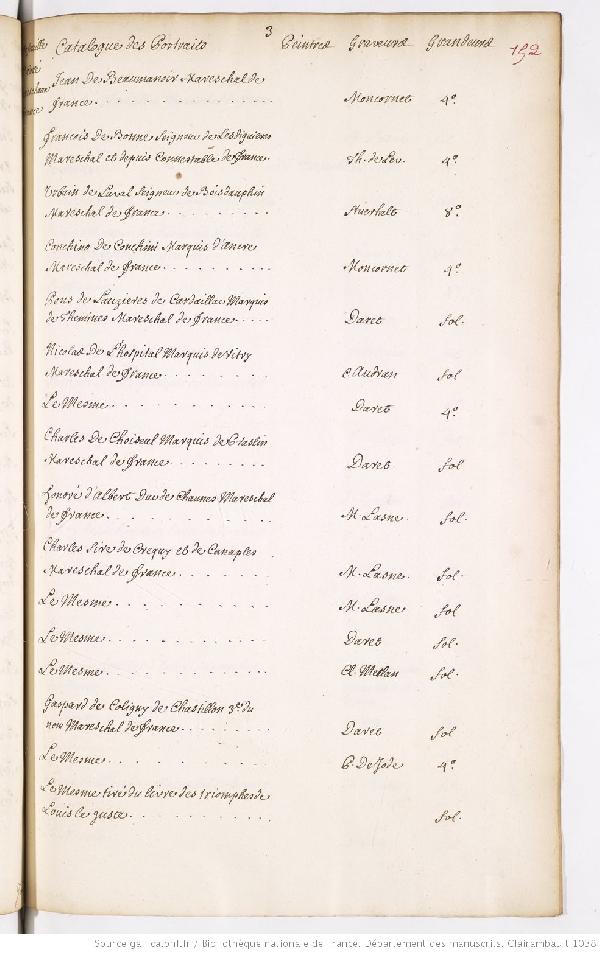 3
Catalogue des Portraits Peintres Graveurs Grandeurs 152
Jean De Beaumanoir Mareschal de
france . . . . . . . . . . Moncornet 4.º
francois De Bonne Seigneur de Lesdiguieres
Mareschal et depuis Connestable de france. Th. de Leu. 4.º
Urbain de Laval Seigneur de Boisdauphin
Mareschal de france . . . . . . . . 8.º
Conchino De Conchini Marquis d'Ancre
Mareschal de france . . . . . . . Moncornet 4.º
Pons de Lauzieres de Cardaillac Marquis
de Themines Mareschal de france . . . . Daret fol.
Nicolas De L'hospital Marquis de Vitry
Mareschal de france . . . . . . . C Audran fol
Le Mesme . . . . . . . . . . Daret 4.º
Charles De Choiseul Marquis de Praslin
Mareschal de france . . . . . . . Daret fol
honoré d'Albert Duc de Chaunes Mareschal
de france . . . . . . . . . . M. Lasne fol.
Charles Sire de Crequy et de Canaples
Mareschal de france . . . . . . M. Lasne fol.
Le Mesme . . . . . . . . . . M. Lasne fol
Le Mesme . . . . . . . . . . Daret fol.
Le Mesme . . . . . . . . . . Cl. Mellan fol.
Gaspard de Coligny de Chastillon 3.e du
nom Mareschal de france . . . . . Daret fol
Le Mesme . . . . . . . . . . P. De Jode 4.º
Le Mesme tiré du livre des triomphes de
Louis le juste . . . . . . . . . fol.
Source gallica.bnf.fr / Bibliothèque nationale de France. Département des manuscrits. Clairambault 1038